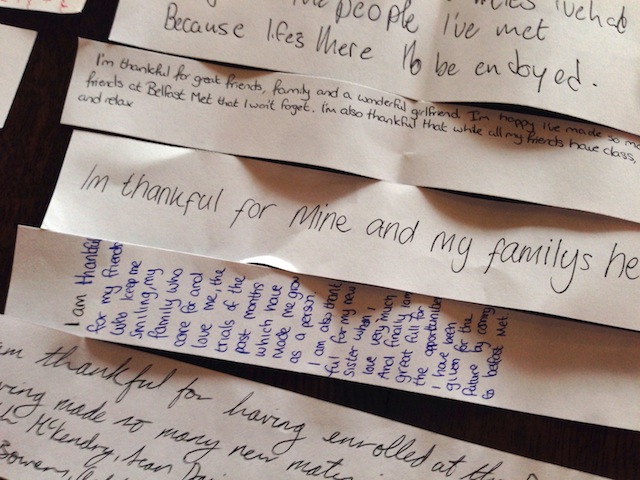 the people
I've had
I've met
Because lifes there to be enjoyed.
I'm thankful for great friends, family and a wonderful girlfriend. I'm happy I've made so
friends at Belfast Met that I won't forget. I'm also thankful that while all my friends have class,
and relax
Im thankful for Mine and my familys he
I am thankful
for my friends
who keep me
smiling, my
family who
care for and
love me, the
trials of the
past months
which have
made me grow
as a person
I am also thank
ful for my new
sister when I
love very much
And finally I am
great full for
the opportunities
I have been
given for the
future by coming
to Belfast Met
am thankful for having enrolled at
made so many new
McKendry, Sean
Bowens,